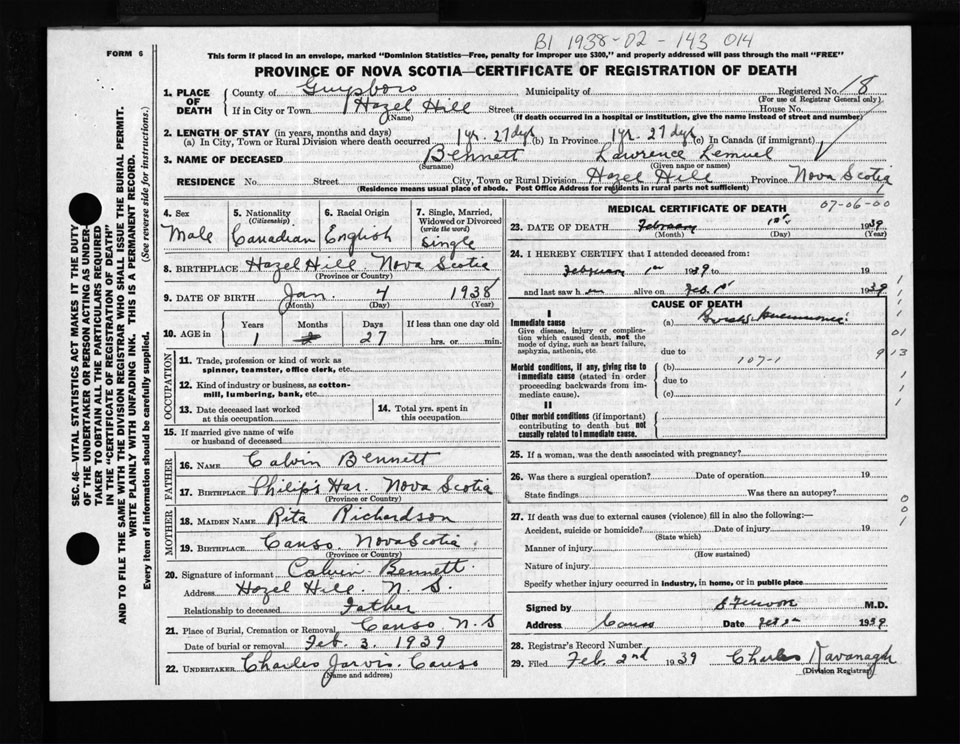 B1 1938-02-143 014
FORM 6
This form if placed in an envelope, marked "Dominion Statistics—Free, penalty for improper use $300," and properly addressed will pass through the mail "FREE"
PROVINCE OF NOVA SCOTIA—CERTIFICATE OF REGISTRATION OF DEATH
1. PLACE OF DEATH County of Guysboro Municipality of Registered No. 8
(For use of Registrar General only)
If in City or Town Hazel Hill Street House No.
(Name) (If death occurred in a hospital or institution, give the name instead of street and number)
2. LENGTH OF STAY (in years, months and days)
(a) In City, Town or Rural Division where death occurred 1 yr. 27 dys (b) In Province 1 yr. 27 dys (c) In Canada (if immigrant)
3. NAME OF DECEASED Bennett Lawrence Lemuel
(Surname) (Given name or names)
RESIDENCE No. Street City, Town or Rural Division Hazel Hill Province Nova Scotia
(Residence means usual place of abode. Post Office Address for residents in rural parts not sufficient)
SEC. 46—VITAL STATISTICS ACT MAKES IT THE DUTY
OF THE UNDERTAKER OR PERSON ACTING AS UNDER-
TAKER TO OBTAIN ALL THE PARTICULARS REQUIRED
IN THE "CERTIFICATE OF REGISTRATION OF DEATH"
AND TO FILE THE SAME WITH THE DIVISION REGISTRAR WHO SHALL ISSUE THE BURIAL PERMIT.
WRITE PLAINLY WITH UNFADING INK. THIS IS A PERMANENT RECORD.
Every item of information should be carefully supplied. (See reverse side for instructions.)
4. Sex 5. Nationality 6. Racial Origin 7. Single, Married,
(Citizenship) Widowed or Divorced
(write the word)
Male Canadian English Single
8. BIRTHPLACE Hazel Hill Nova Scotia
(Province or Country)
9. DATE OF BIRTH Jan. 4 1938
(Month) (Day) (Year)
10. AGE in Years Months Days If less than one day old
1 27 hrs. or min.
OCCUPATION
11. Trade, profession or kind of work as
spinner, teamster, office clerk, etc.
12. Kind of industry or business, as cotton-
mill, lumbering, bank, etc.
13. Date deceased last worked at this occupation
14. Total yrs. spent in this occupation
15. If married give name of wife
or husband of deceased
FATHER
16. NAME Calvin Bennett
17. BIRTHPLACE Philip's Har. Nova Scotia
(Province or Country)
MOTHER
18. MAIDEN NAME Rita Richardson
19. BIRTHPLACE Canso Nova Scotia
(Province or Country)
20. Signature of informant Calvin Bennett.
Address Hazel Hill. N. S.
Relationship to deceased Father
21. Place of Burial, Cremation or Removal Canso N.S
Date of burial or removal Feb. 3. 1939
22. UNDERTAKER Charles Jarvis. Canso
(Name and address)
07-06-00
MEDICAL CERTIFICATE OF DEATH
23. DATE OF DEATH February 1st 1939
(Month) (Day) (Year)
24. I HEREBY CERTIFY that I attended deceased from:
February 1st 1939 to 19
and last saw h im alive on Feb. 1st 1939
CAUSE OF DEATH
I
Immediate cause (a) Pneumonia
Give disease, injury or complica-
tion which caused death, not the
mode of dying, such as heart failure,
asphyxia, asthenia, etc.
due to
107-1
Morbid conditions, if any, giving rise to (b)
immediate cause (stated in order
proceeding backwards from im-
mediate cause).
due to
(c)
II
Other morbid conditions (if important)
contributing to death but not
causally related to immediate cause.
01
9 13
25. If a woman, was the death associated with pregnancy?
26. Was there a surgical operation? Date of operation 19
State findings Was there an autopsy?
27. If death was due to external causes (violence) fill in also the following:—
Accident, suicide or homicide? Date of injury 19
(State which)
Manner of injury
(How sustained)
Nature of injury
Specify whether injury occurred in industry, in home, or in public place
0
0
1
Signed by M.D.
Address Canso Date Feb 1939
28. Registrar's Record Number
29. Filed Feb. 2nd 1939 Charles Kavanagh
(Division Registrar)